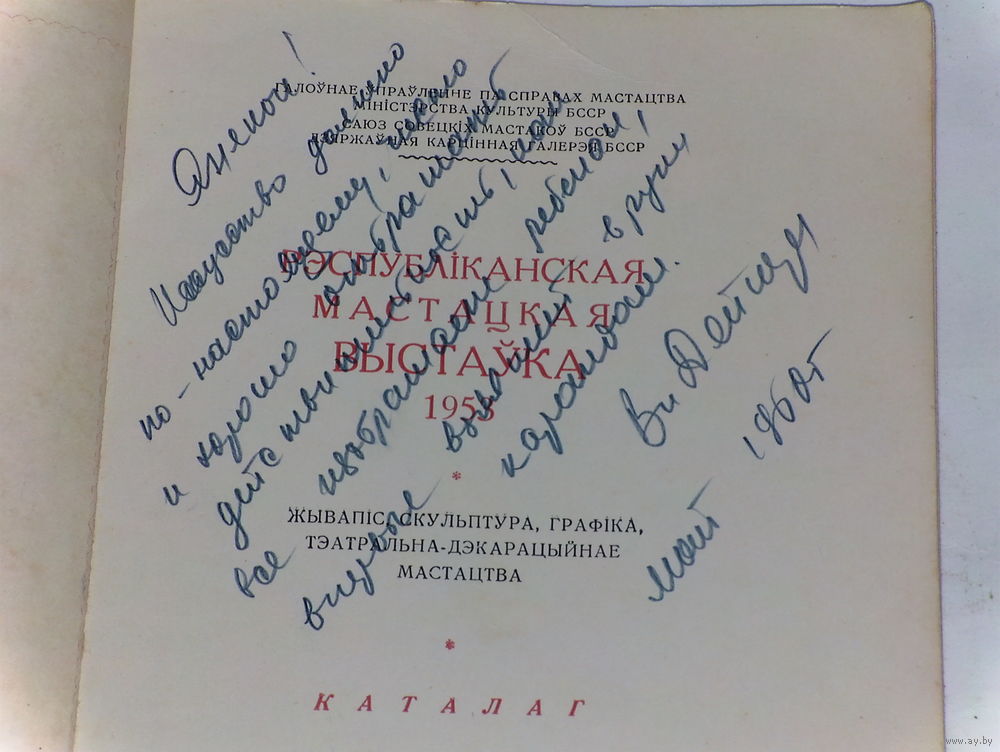 ГАЛОЎНАЕ ЎПРАЎЛЕННЕ ПА СПРАВАХ МАСТАЦТВА
МІНІСТЭРСТВА КУЛЬТУРЫ БССР
САЮЗ СОВЕЦКІХ МАСТАКОЎ БССР
ДЗЯРЖАЎНАЯ КАРЦІННАЯ ГАЛЕРЭЯ БССР
РЭСПУБЛІКАНСКАЯ
МАСТАЦКАЯ
ВЫСТАЎКА
1953
ЖЫВАПІС, СКУЛЬПТУРА, ГРАФІКА,
ТЭАТРАЛЬНА-ДЭКАРАЦЫЙНАЕ
МАСТАЦТВА
КАТАЛАГ
Искусство должно
по-настоящему,
и хорошо отображать
действительность,
все изображает ребенок,
впервые взявший в руки
карандаш.
май
www.ay.by